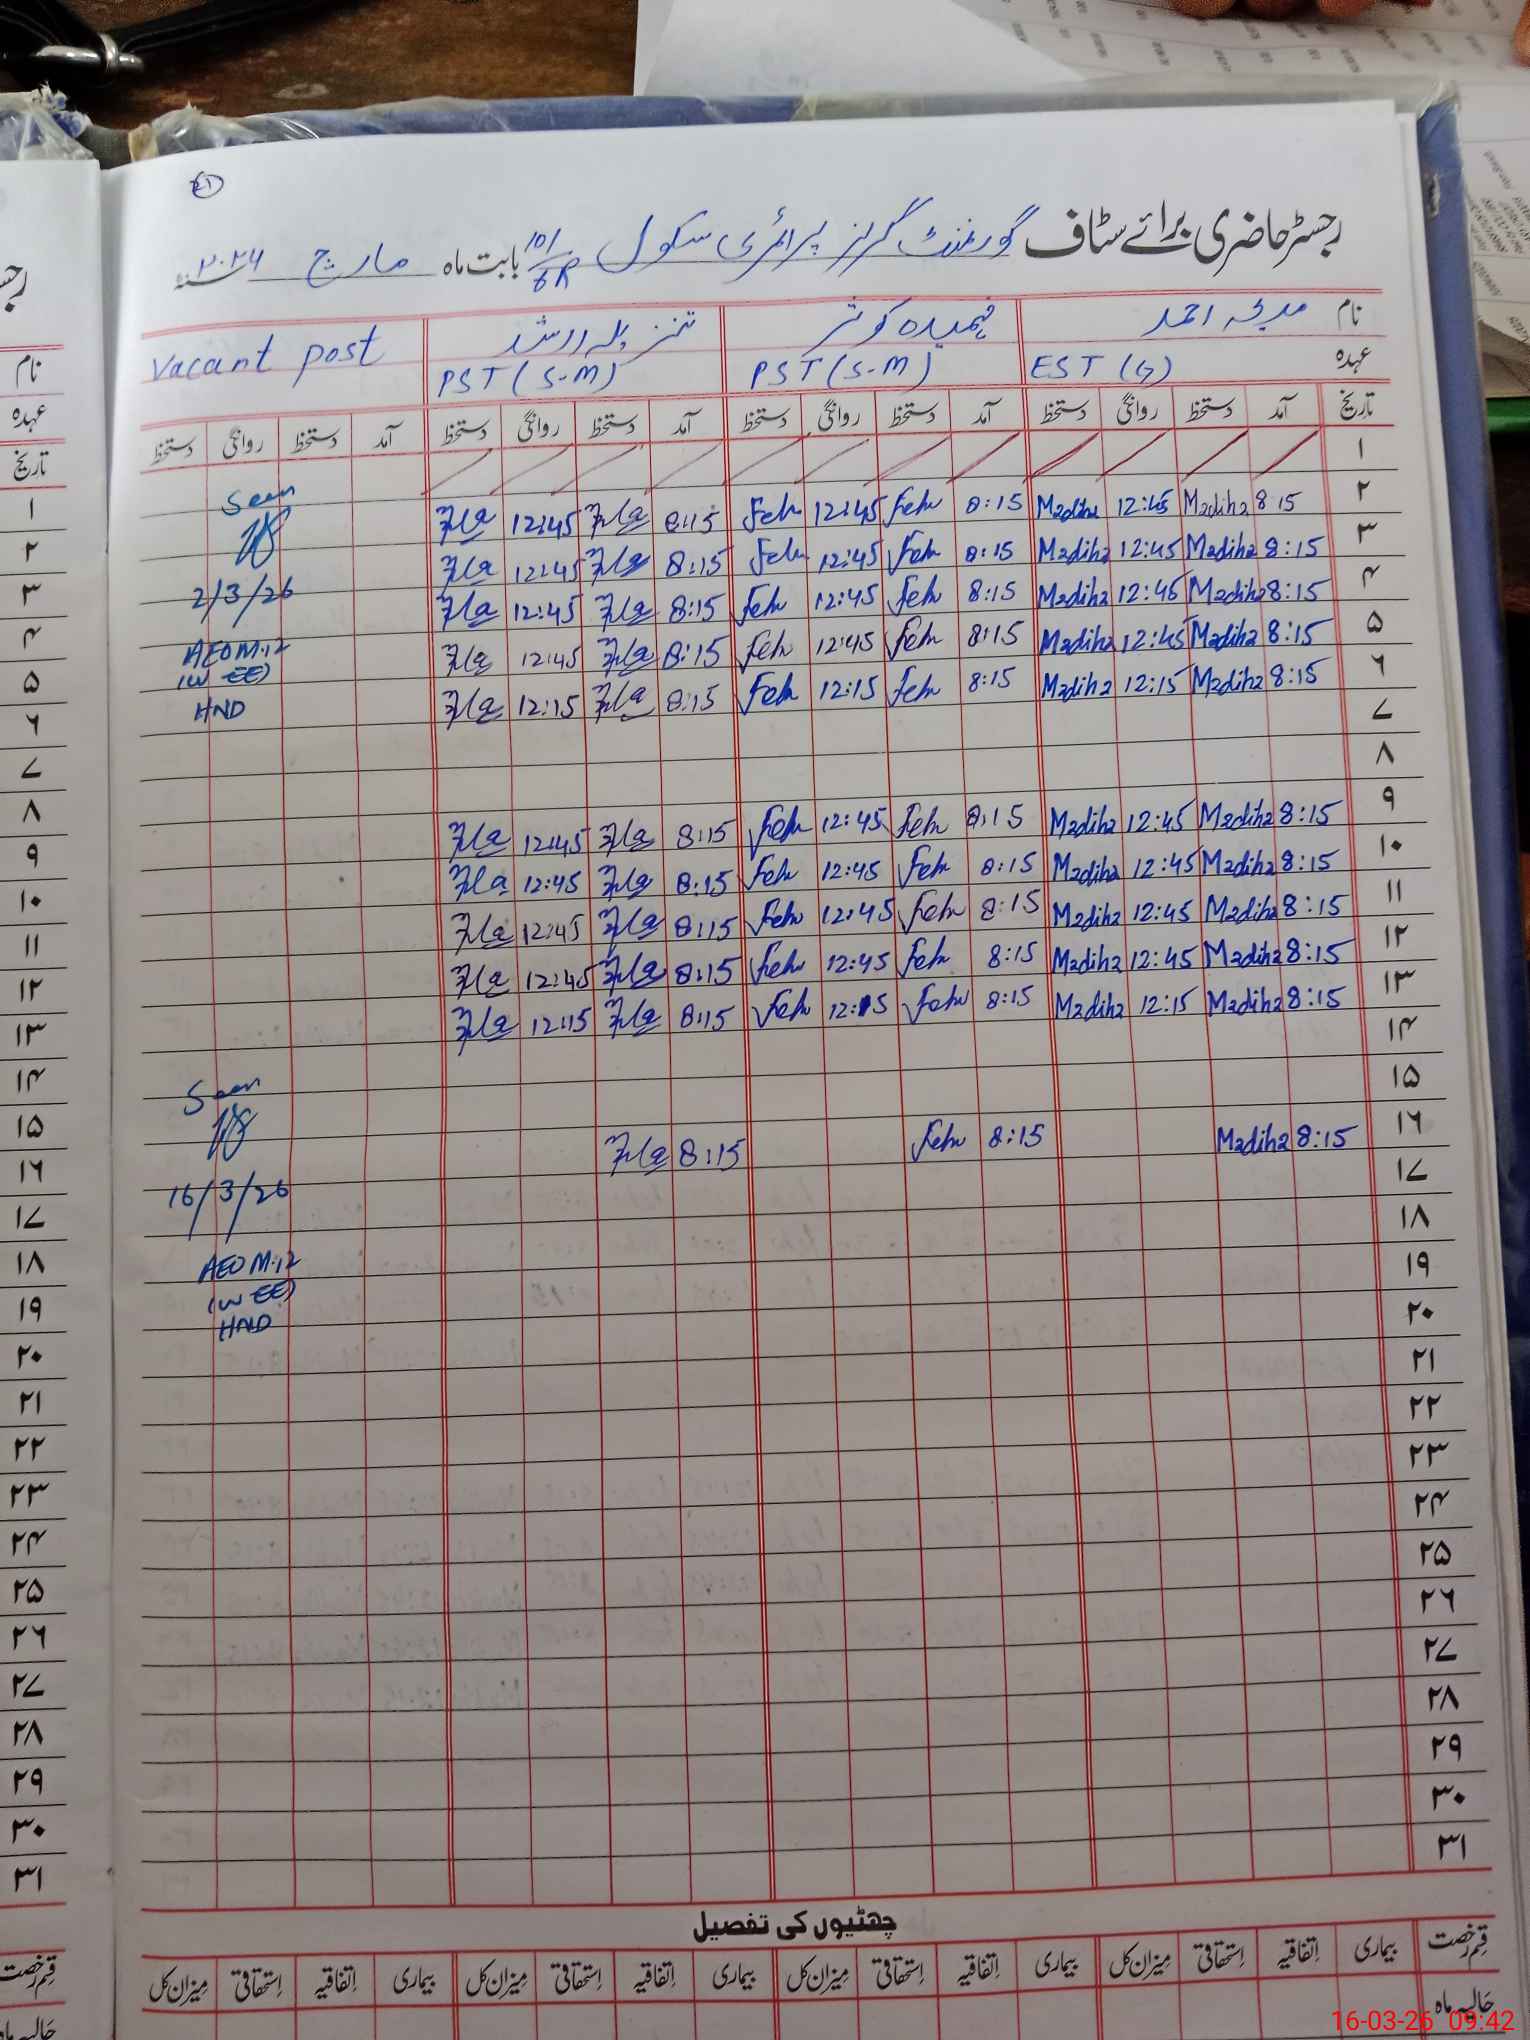 رجسٹر حاضری برائے سٹاف گورنمنٹ گرلز پرائمری سکول 101/6R بابت ماہ مارچ ۲۰۲۶
نام مدیحہ احمد فہمیدہ کوثر تنزیلہ ارشد vacant post
عہدہ EST (G) PST (S-M) PST (S-M)
تاریخ آمد دستخط روانگی دستخط آمد دستخط روانگی دستخط آمد دستخط روانگی دستخط آمد دستخط روانگی دستخط
۱
۲ 8:15 Madiha 12:45 Madiha 8:15 Feh 12:45 Feh 8:15 12:45 Seen
۳ 8:15 Madiha 12:45 Madiha 8:15 Feh 12:45 Feh 8:15 12:45
۴ 8:15 Madiha 12:45 Madiha 8:15 Feh 12:45 Feh 8:15 12:45 2/3/26
۵ 8:15 Madiha 12:45 Madiha 8:15 Feh 12:45 Feh 8:15 12:45 AEO M:12
(W EE)
۶ 8:15 Madiha 12:15 Madiha 8:15 Feh 12:15 Feh 8:15 12:15 HND
۷
۸
۹ 8:15 Madiha 12:45 Madiha 8:15 Feh 12:45 Feh 8:15 12:45
۱۰ 8:15 Madiha 12:45 Madiha 8:15 Feh 12:45 Feh 8:15 12:45
۱۱ 8:15 Madiha 12:45 Madiha 8:15 Feh 12:45 Feh 8:15 12:45
۱۲ 8:15 Madiha 12:45 Madiha 8:15 Feh 12:45 Feh 8:15 12:45
۱۳ 8:15 Madiha 12:15 Madiha 8:15 Feh 12:15 Feh 8:15 12:15
۱۴
۱۵ Seen
۱۶ 8:15 Madiha 8:15 Feh 8:15
۱۷ 16/3/26
۱۸
۱۹ AEO M:12
(W EE)
۲۰ HND
۲۱
۲۲
۲۳
۲۴
۲۵
۲۶
۲۷
۲۸
۲۹
۳۰
۳۱
چھٹیوں کی تفصیل
قسم رخصت بیماری اتفاقیہ استحقاقی میزان کل بیماری اتفاقیہ استحقاقی میزان کل بیماری اتفاقیہ استحقاقی میزان کل بیماری اتفاقیہ استحقاقی میزان کل
حالیہ ماہ
نام
عہدہ
تاریخ
۱
۲
۳
۴
۵
۶
۷
۸
۹
۱۰
۱۱
۱۲
۱۳
۱۴
۱۵
۱۶
۱۷
۱۸
۱۹
۲۰
۲۱
۲۲
۲۳
۲۴
۲۵
۲۶
۲۷
۲۸
۲۹
۳۰
۳۱
قسم رخصت
16-03-26 09:42